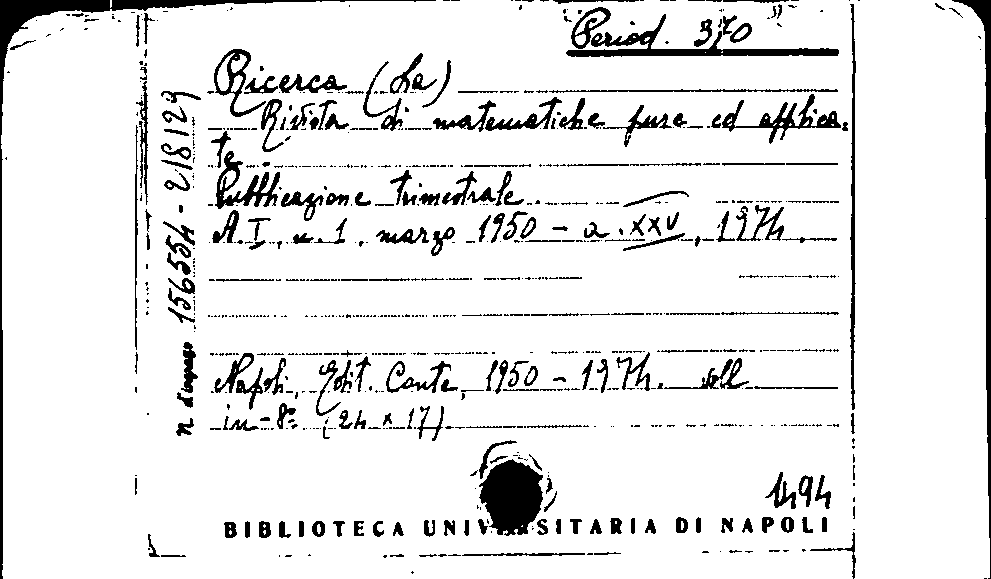 Period. 370
Ricerca (La)
Rivista di matematiche pure ed applica-
te.
Pubblicazione trimestrale.
A. I, n. 1, marzo 1950 - a. XXV, 1974.
Napoli, Edit. Conte, 1950 - 1974. voll.
in-8° (24 x 17).
n. d'ingresso 156554 - 218129
1494
BIBLIOTECA UNIVERSITARIA DI NAPOLI